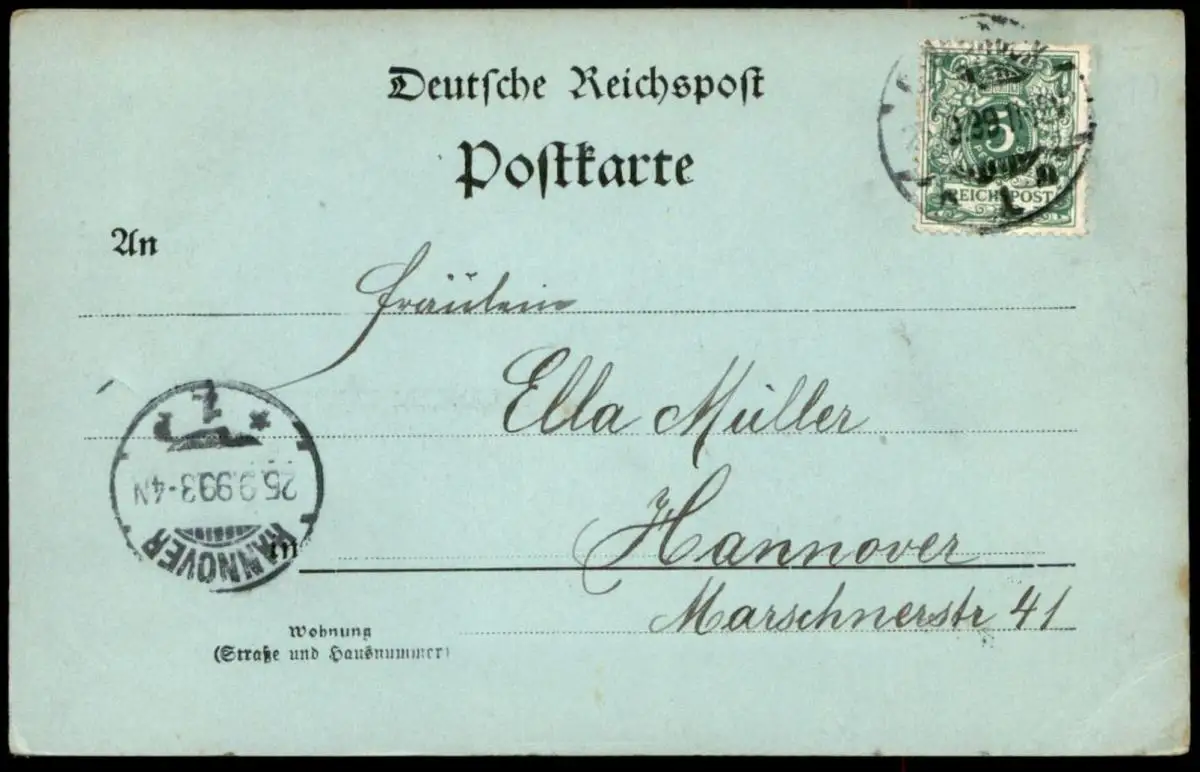 Deutsche Reichspost
Postkarte
5
REICHSPOST
An
Fräulein
Ella Müller
in Hannover
Marschnerstr 41
Wohnung
(Straße und Hausnummer)
HANNOVER
25.9.99.3-4N
1